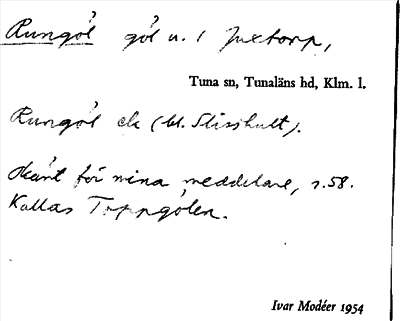 Rungöl göl u. / Juxtorp,
Tuna sn, Tunaläns hd, Klm. l.
Rungöl ek (bl. Slisshult).
Okänt för mina meddelare, s. 58.
Kallas Toppgölen.
Ivar Modéer 1954